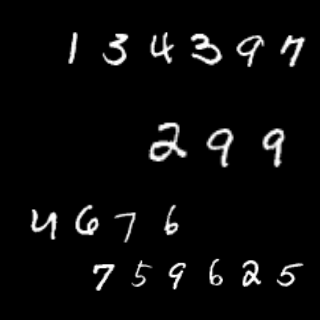 134397
299
4676
759625